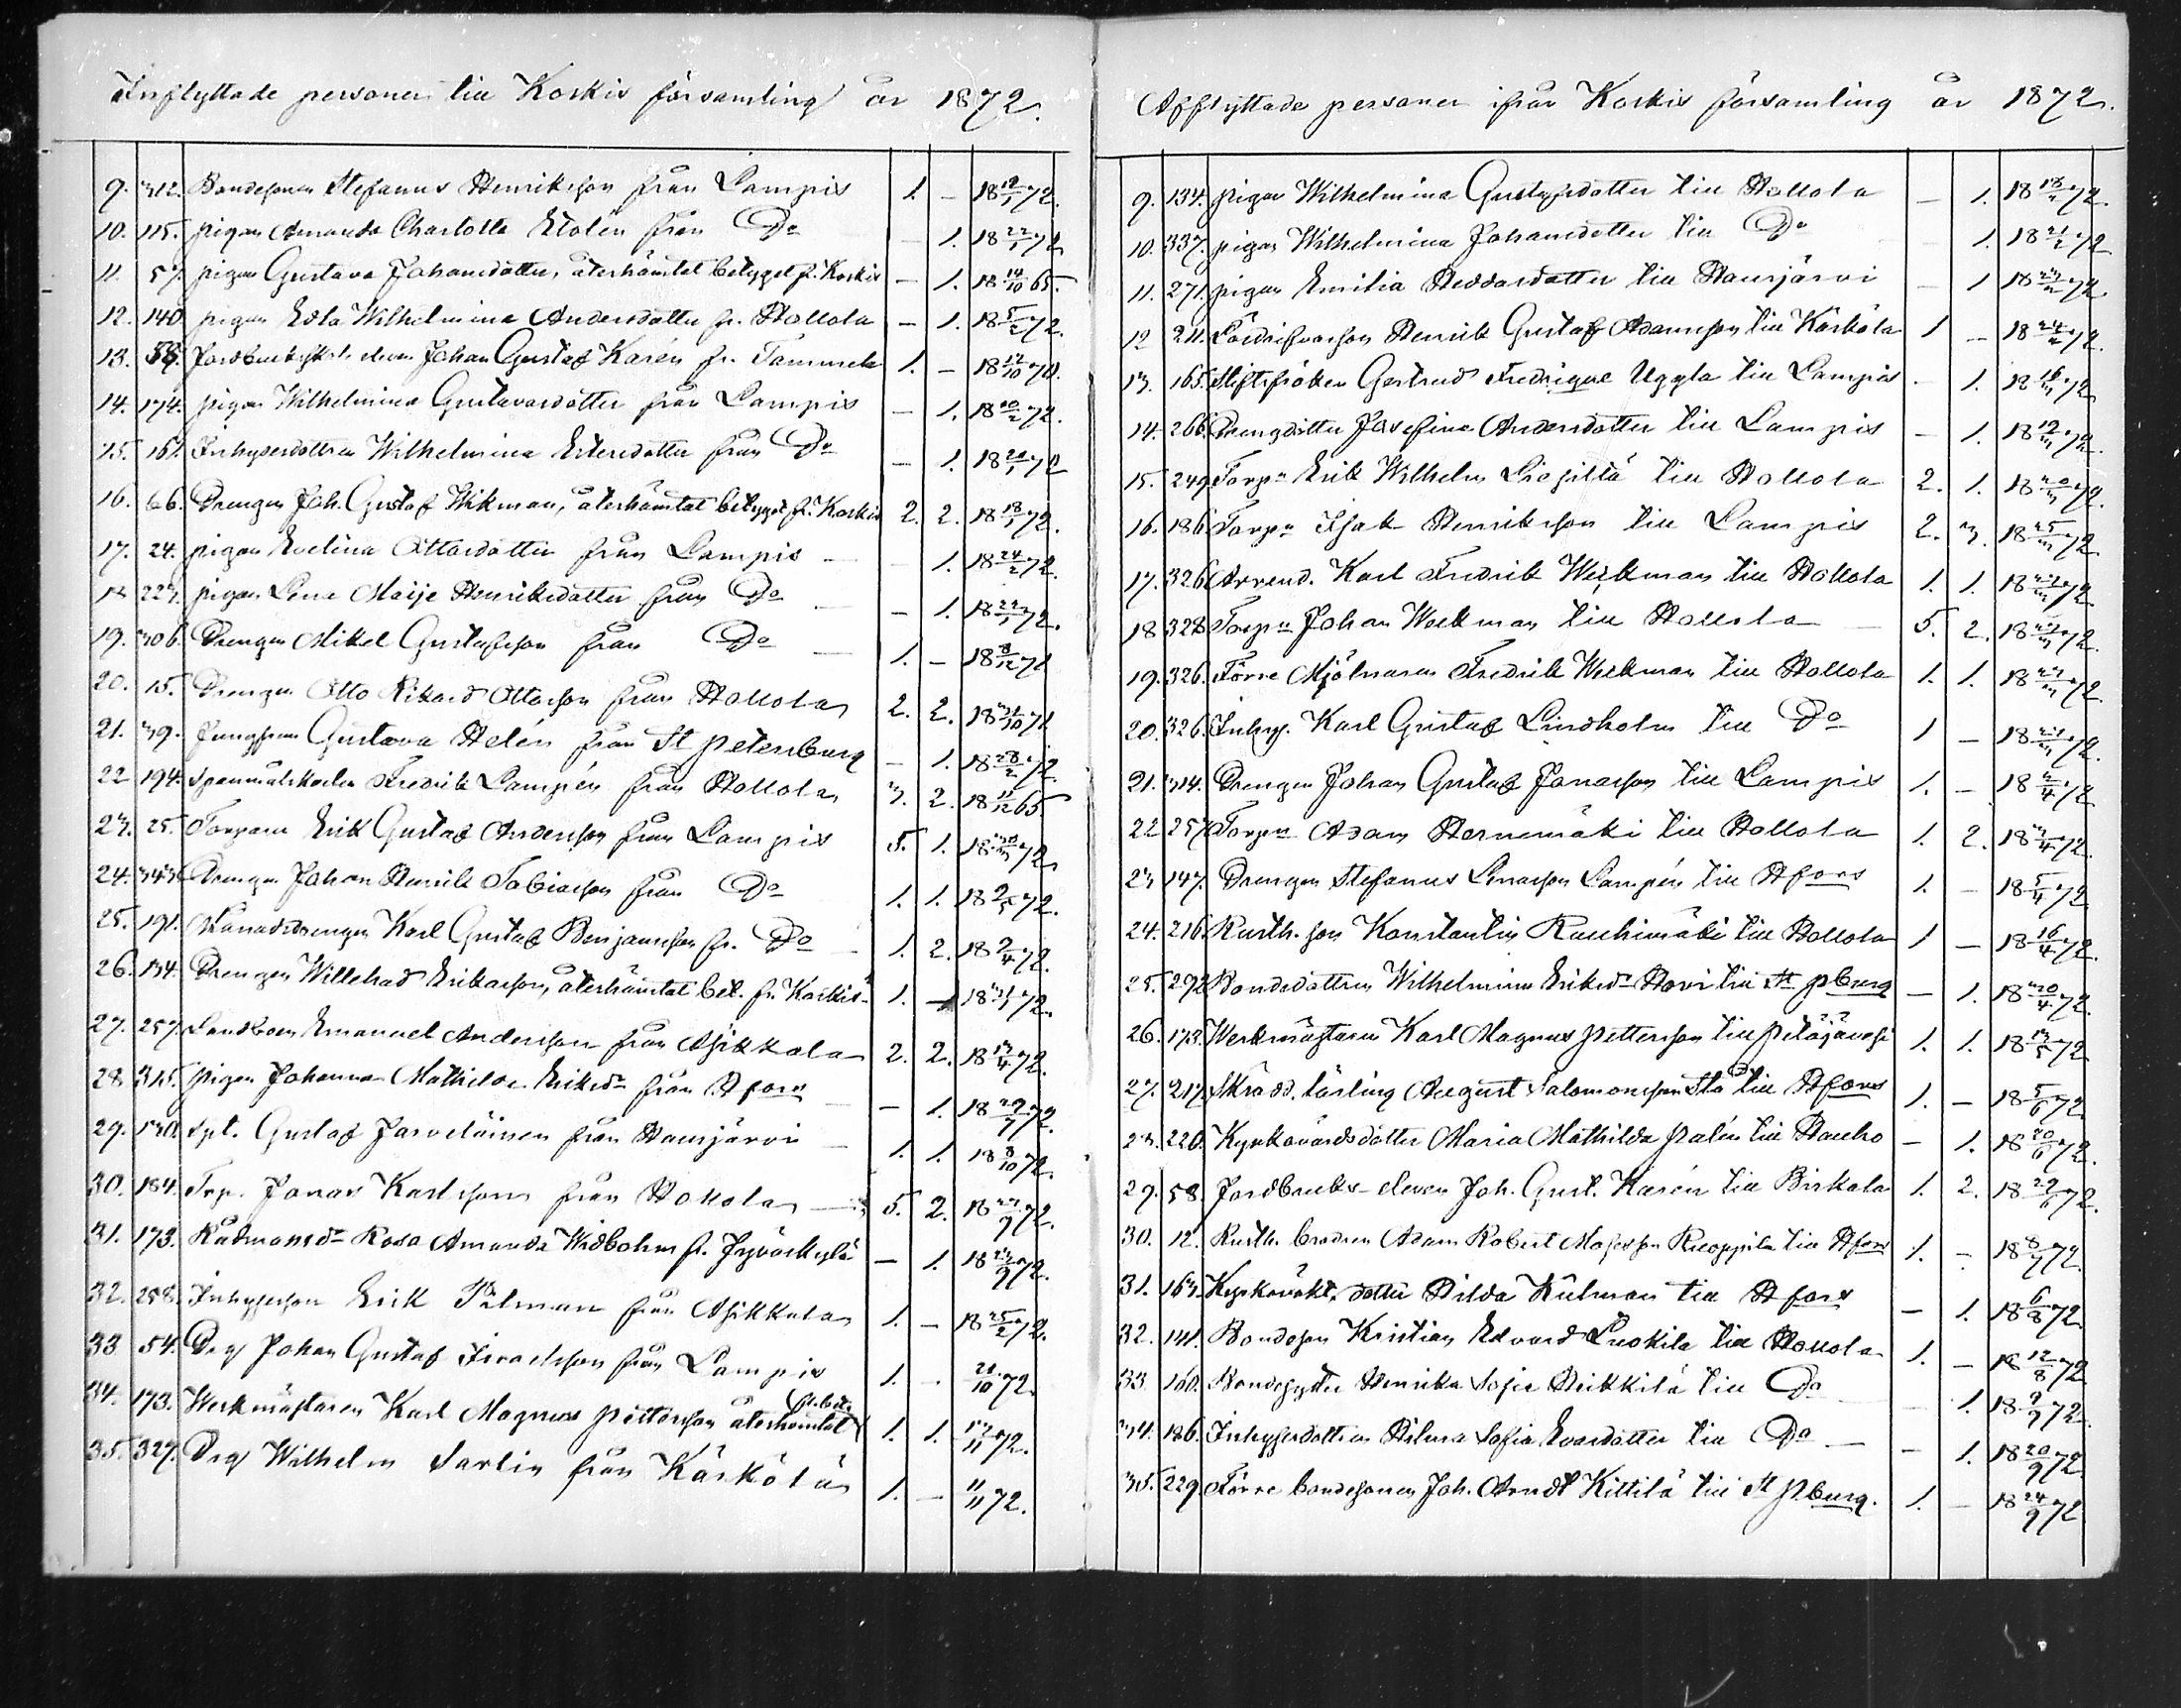 Inflyttade personer till Koskis församling år 1872.
9. 312. Bondesonen Stefanus Henriksson från Lampis 1. – 18 12/1 72.
10. 115. pigan Amanda Charlotta Stolén från Do – 1. 18 22/1 72
11. 57. pigan Gustava Johansdotter, återhämtat betyget fr. Koskis – 1. 18 14/10 65.
12. 140 pigan Edla Wilhelmina Andersdotter fr. Hollola – 1. 18 5/2 72.
13. 58. eleven Johan Gustaf Karén fr. Tammela 1. – 18 12/10 70.
14. 174. pigan Wilhelmina Gustavsdotter från Lampis – 1. 18 10/2 72.
15. 161. Inhysesdottren Wilhelmina Ericsdotter från Do – 1. 18 20/1 72
16. 66. Drengen Joh. Gustaf Wikman, återhämtat betyget fr. Koskis 2. 2. 18 18/1 72.
17. 24. pigan Evelina Ottosdotter från Lampis – 1. 18 24/2 72.
18 223. pigan Lena Maija Henriksdotter från Do – 1. 18 22/1 72.
19. 306. Drengen Mikel Gustafsson från Do 1. – 18 8/12 71
20. 15. Drengen Otto Rikard Ottosson från Hollola 2. 2. 18 31/10 71
21. 39. Jungfrun Gustava Helén från St petersburg – 1. 18 28/2 72.
22 194. Fredrik Lampén från Hollola 3. 2. 18 11/12 65.
23. 25. Torparen Erik Gustaf Andersson från Lampis 5. 1. 18 30/3 72
24. 343. Drengen Johan Henrik Tobiasson från Do 1. 1. 18 2/5 72.
25. 191. Månadsdrengen Karl Gustaf Benjamsson fr. Do 1. 2. 18 2/4 72.
26. 134. Drengen Willehad Eriksson, återhämtat bet. fr. Koskis 1. – 18 31/1 72.
27. 257. Landboen Emanuel Andersson från Asikkala 2. 2. 18 13/4 72.
28 315. pigan Johanna Mathilda Eriksdr från Hfors – 1. 18 29/7 72.
29. 130. Spt. Gustaf Jarveläinen från Hausjärvi 1. 1. 18 8/10 72.
30. 184. Trp. Jonas Karlsson från Hollola 5. 2. 18 27/9 72.
31. 173. Rådmansdr Rosa Amanda Widbohm fr. Jyväskylä – 1. 18 23/9 72.
32. 258. Inhysesson Erik Pilman från Asikkala 1. – 18 25/2 72.
33 54. Drg Johan Gustaf Israelsson från Lampis 1. – 21/10 72
34. 173. Werkmästaren Karl Magnus Pettersson återhämtat fr. bet. 1. 1. 13/11 72.
35. 327. Drg Wilhelm Sarlin från Kärkölä 1. – 11/11 72.
Afflyttade personer ifrån Koskis församling år 1872.
9. 134. pigan Wilhelmina Gustafsdotter till Hollola – 1. 18 13/2 72.
10. 337. pigan Wilhelmina Johansdotter till Do 1. 18 21/2 72
11. 271. pigan Emilia Heddasdotter till Hausjärvi – 1 18 23/2 72
12 211. Henrik Gustaf Adamsson till Kärkölä 1 – 18 24/2 72.
13. 165. Stiftsfröken Gertrud Fredrique Uggla till Lampis – 1. 18 16/3 72
14. 266. Drengdotter Josefina Andersdotter till Lampis – 1. 18 19/3 72.
15. 249. Torpn Erik Wilhelm till Hollola 2. 1. 18 20/3 72.
16. 186 Torpn Isak Henriksson till Lampis 2. 3. 18 25/3 72
17. 326 Arrend. Karl Fredrik Wekman till Hollola 1. 1. 18 27/3 72
18 328 Torpn Johan Wekman till Hollola 5. 2. 18 27/3 72.
19. 326. Förre Mjölnaren Fredrik Wekman till Hollola 1. 1. 18 27/3 72
20. 326. Inhys. Karl Gustaf Lindholm till Do 1 – 18 27/3 72.
21. 314. Drengen Johan Gustaf Jonasson till Lampis 1. – 18 2/4 72
22 257 Torpn Adam Hernemäki till Hollola 1. 2. 18 3/4 72.
23 147. Drengen Stefanus Lampén till Hfors 1. – 18 5/4 72
24. 216. Rusth. son Konstantin Rauhimäki till Hollola 1 – 18 16/4 72.
25. 292 Bondedottren Wilhelmina Eriksdr Hovi till St pburg – 1. 18 30/4 72.
26. 173. Werkmästaren Karl Magnus Pettersson till petäjävesi 1. 1. 18 13/5 72
27. 217. Skrädd. lärling August Salomonsson till Hfors 1. – 18 5/6 72
28. 220. Kyrkovärdsdotter Maria Mathilda Palén till Hauho – 1. 18 20/6 72.
29. 58 Jordbruks-eleven Joh. Gust. Karén till Birkala 1. 2. 18 29/6 72.
30. 12. Rusth. brodren Adam Robert Mosesson till Hfors 1. – 18 8/7 72.
31. 163. Kyrkovakt. dotter Hilda Kulman till Hfors – 1. 18 6/8 72.
32. 141. Bondeson Kristian Edvard Luokila till Hollola 1. – 18 12/8 72
33 160. Bondsyster Henrika Sofia Heikkilä till Do – 1. 18 9/9 72.
34. 186. Inhysesdottren Hilma Sofia Evasdotter till Do – 1. 18 20/9 72
35. 229. Förre bondesonen Joh. Arndt Kittilä till St Pburg. 1. – 18 24/9 72